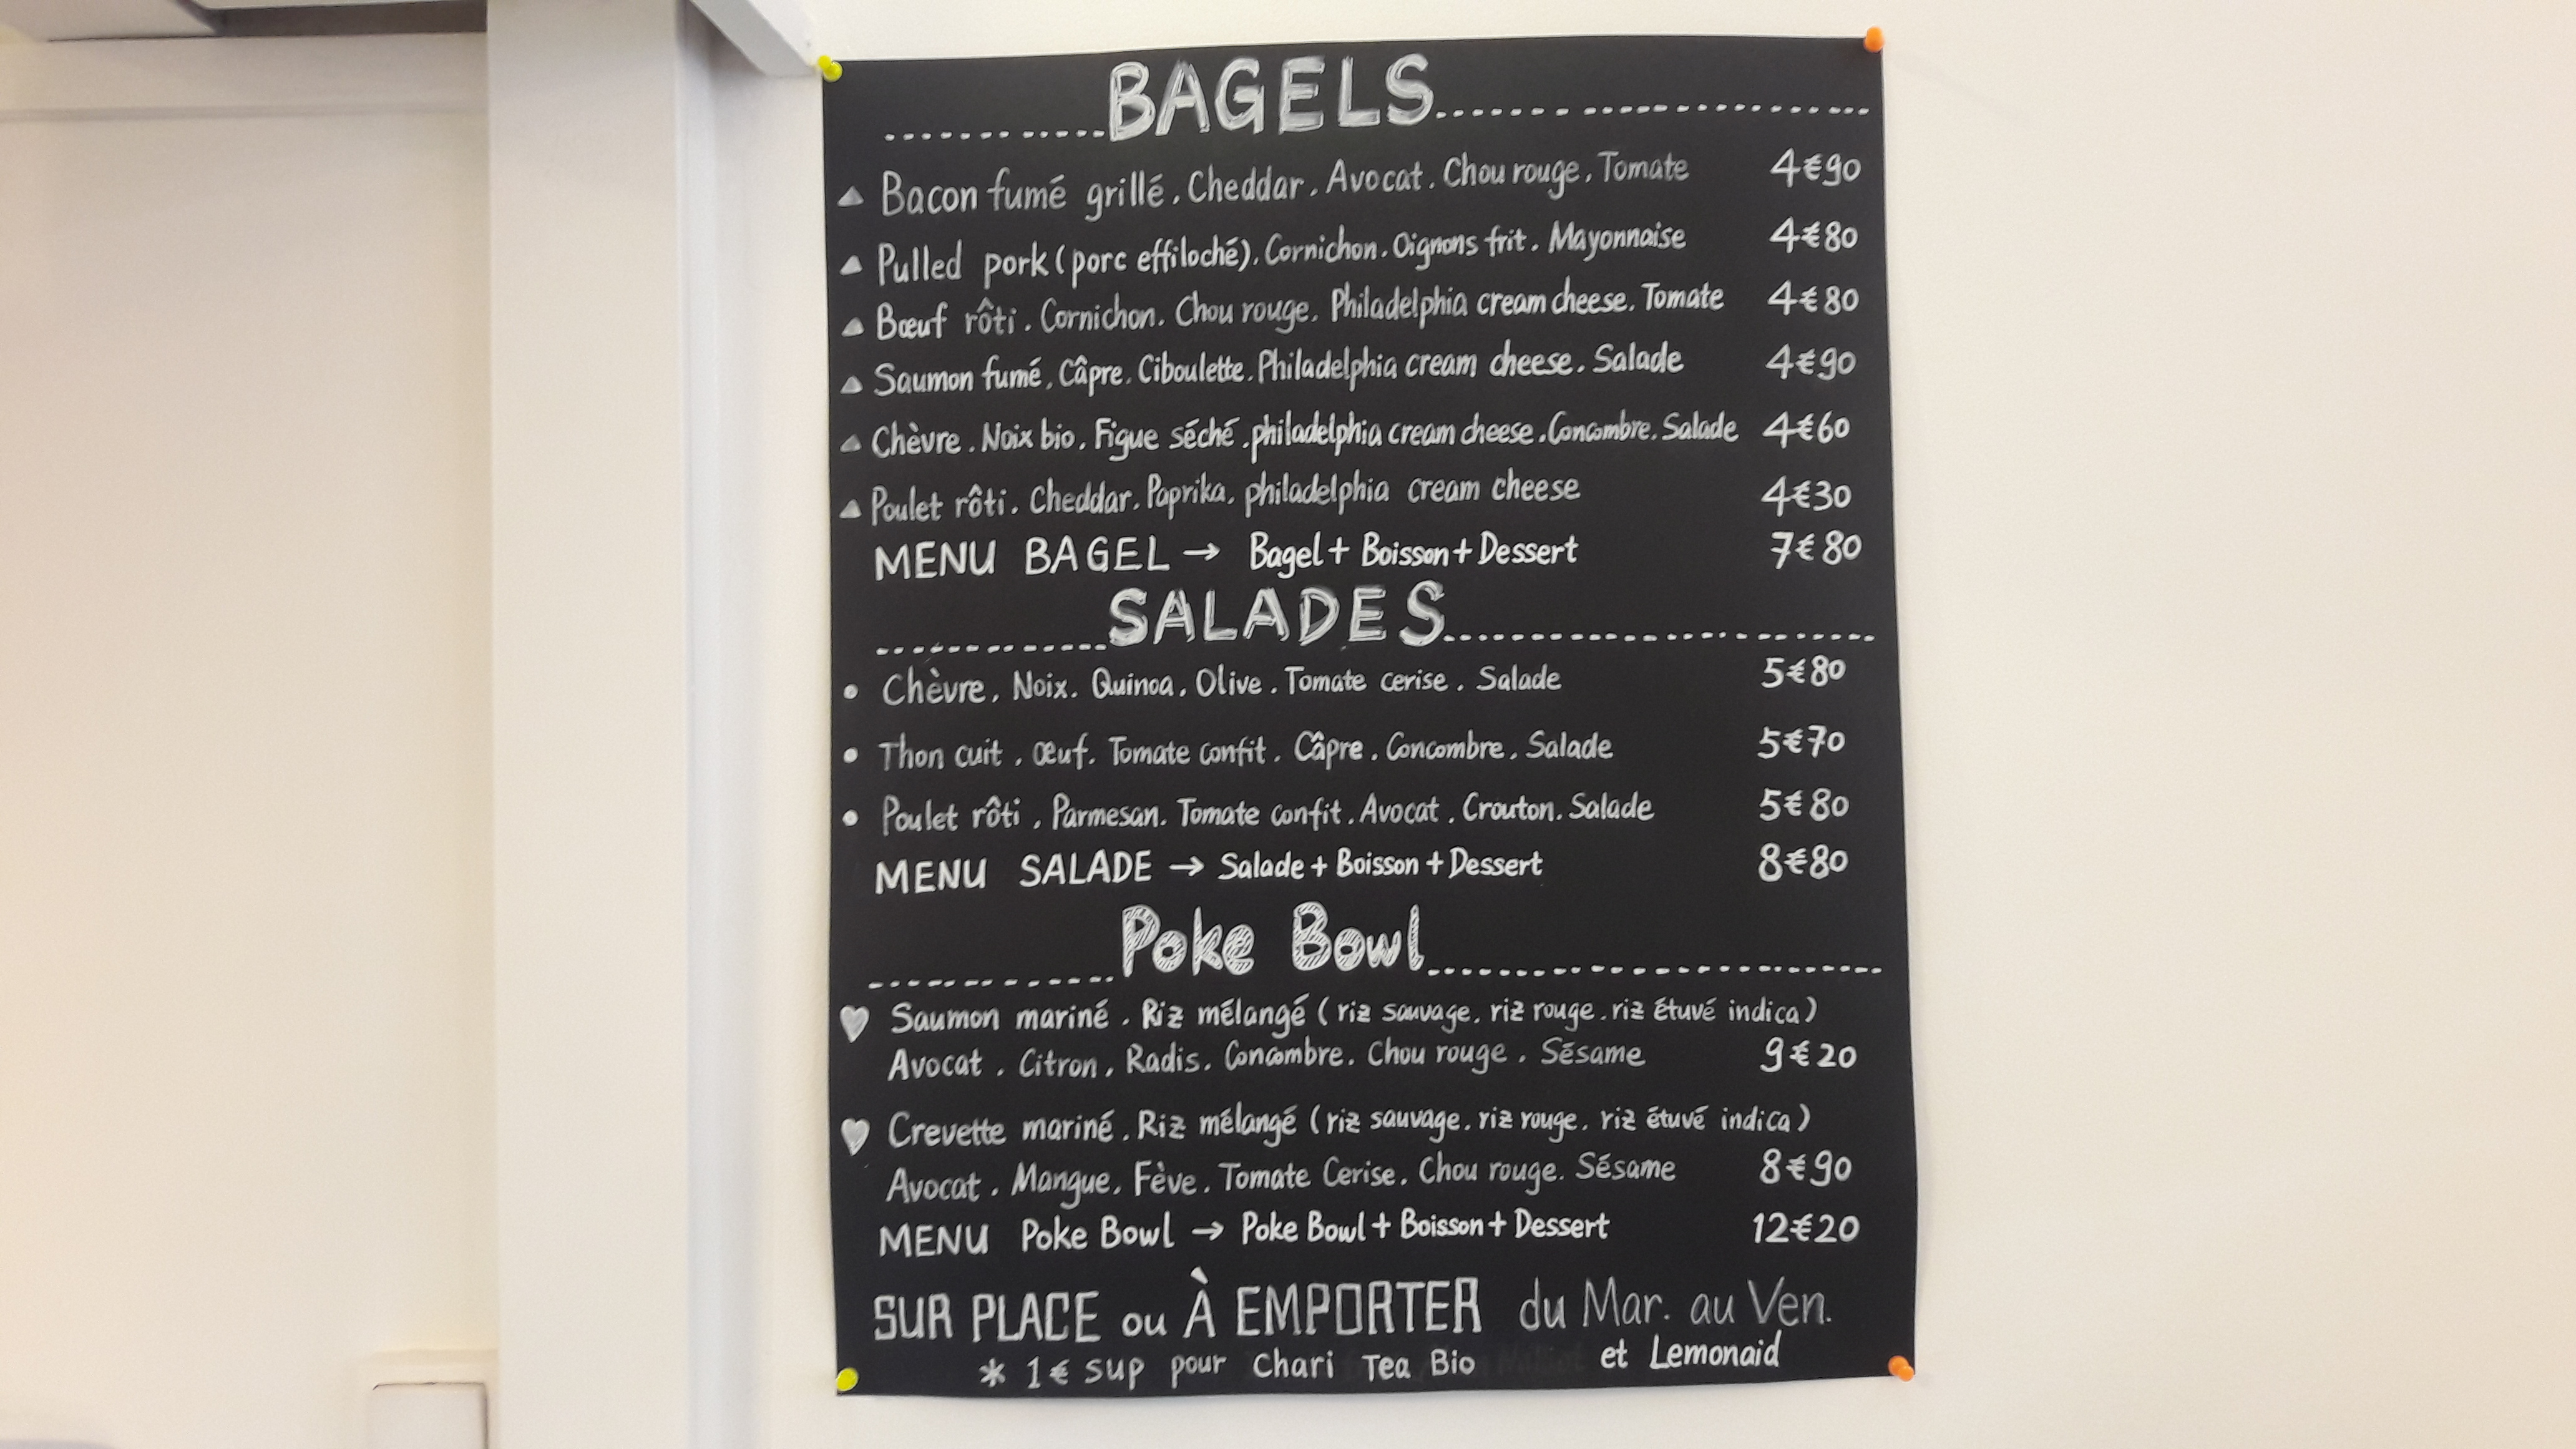 BAGELS
Bacon fumé grillé. Cheddar. Avocat. Chou rouge. Tomate 4€90
Pulled pork (porc effiloché). Cornichon. Oignons frit. Mayonnaise 4€80
Bœuf rôti. Cornichon. Chou rouge. Philadelphia cream cheese. Tomate 4€80
Saumon fumé. Câpre. Ciboulette. Philadelphia cream cheese. Salade 4€90
Chèvre. Noix bio. Figue séché. philadelphia cream cheese. Concombre. Salade 4€60
Poulet rôti. Cheddar. Paprika. philadelphia cream cheese 4€30
MENU BAGEL → Bagel + Boisson + Dessert 7€80
SALADES
Chèvre. Noix. Quinoa. Olive. Tomate cerise. Salade 5€80
Thon cuit. Œuf. Tomate confit. Câpre. Concombre. Salade 5€70
Poulet rôti. Parmesan. Tomate confit. Avocat. Crouton. Salade 5€80
MENU SALADE → Salade + Boisson + Dessert 8€80
Poke Bowl
Saumon mariné. Riz mélangé (riz sauvage. riz rouge. riz étuvé indica)
Avocat. Citron. Radis. Concombre. Chou rouge. Sésame 9€20
Crevette mariné. Riz mélangé (riz sauvage. riz rouge. riz étuvé indica)
Avocat. Mangue. Fève. Tomate Cerise. Chou rouge. Sésame 8€90
MENU Poke Bowl → Poke Bowl + Boisson + Dessert 12€20
SUR PLACE ou À EMPORTER du Mar. au Ven.
* 1€ sup pour Chari Tea Bio et Lemonaid